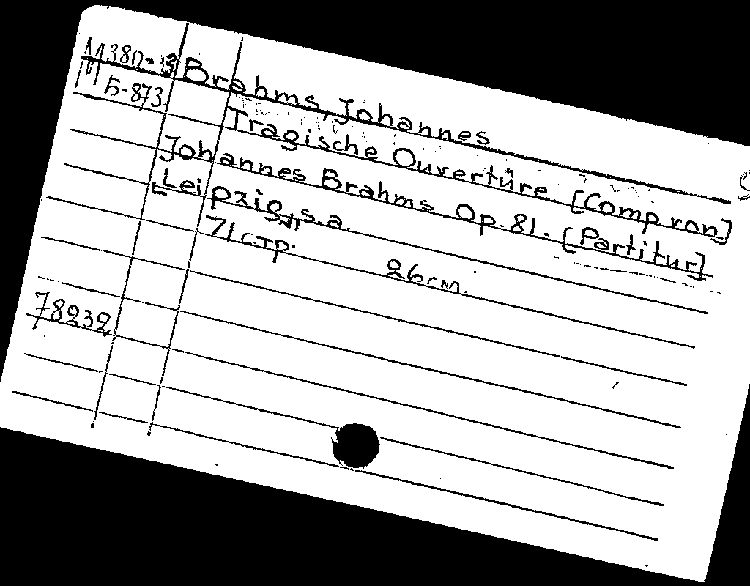 М380-3 Brahms, Johannes
Б-873
Tragische Ouvertüre [Comp von]
Johannes Brahms Op 81. [Partitur]
[Leipzig] s.a.
71 стр. 26 cm.
78232